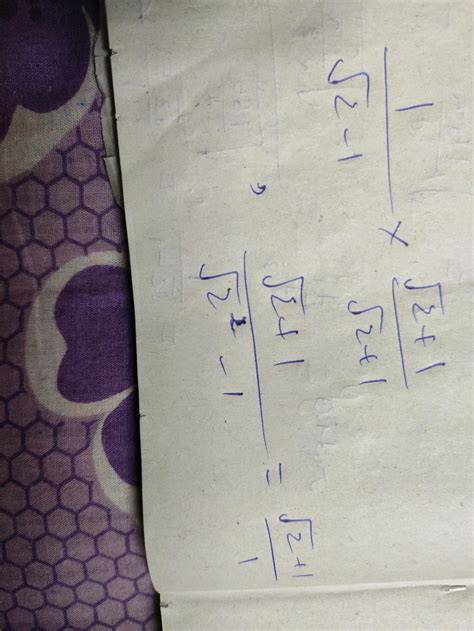 1/(√2 - 1) × (√2 + 1)/(√2 + 1)
, (√2 + 1)/(√2² - 1) = (√2 + 1)/1